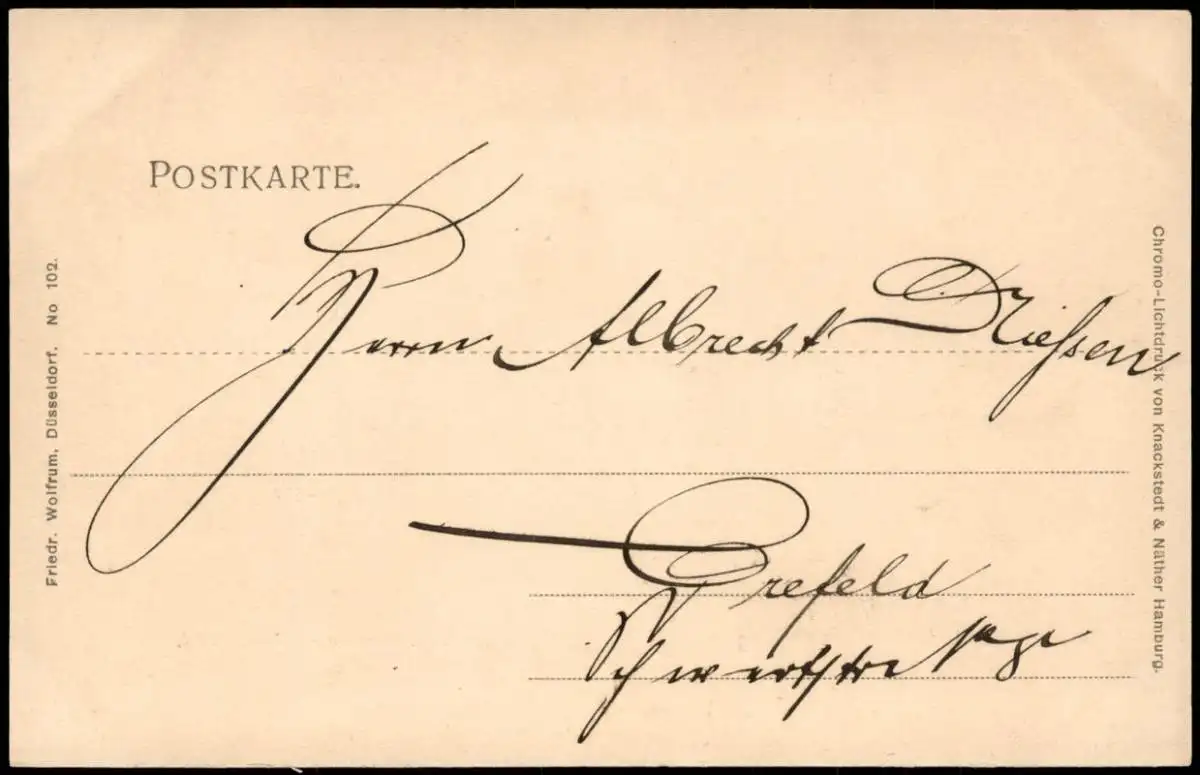 POSTKARTE.
Herrn Albrecht Drießen
Crefeld
Friedr. Wolfrum, Düsseldorf. No 102.
Chromo-Lichtdruck von Knackstedt & Näther Hamburg.